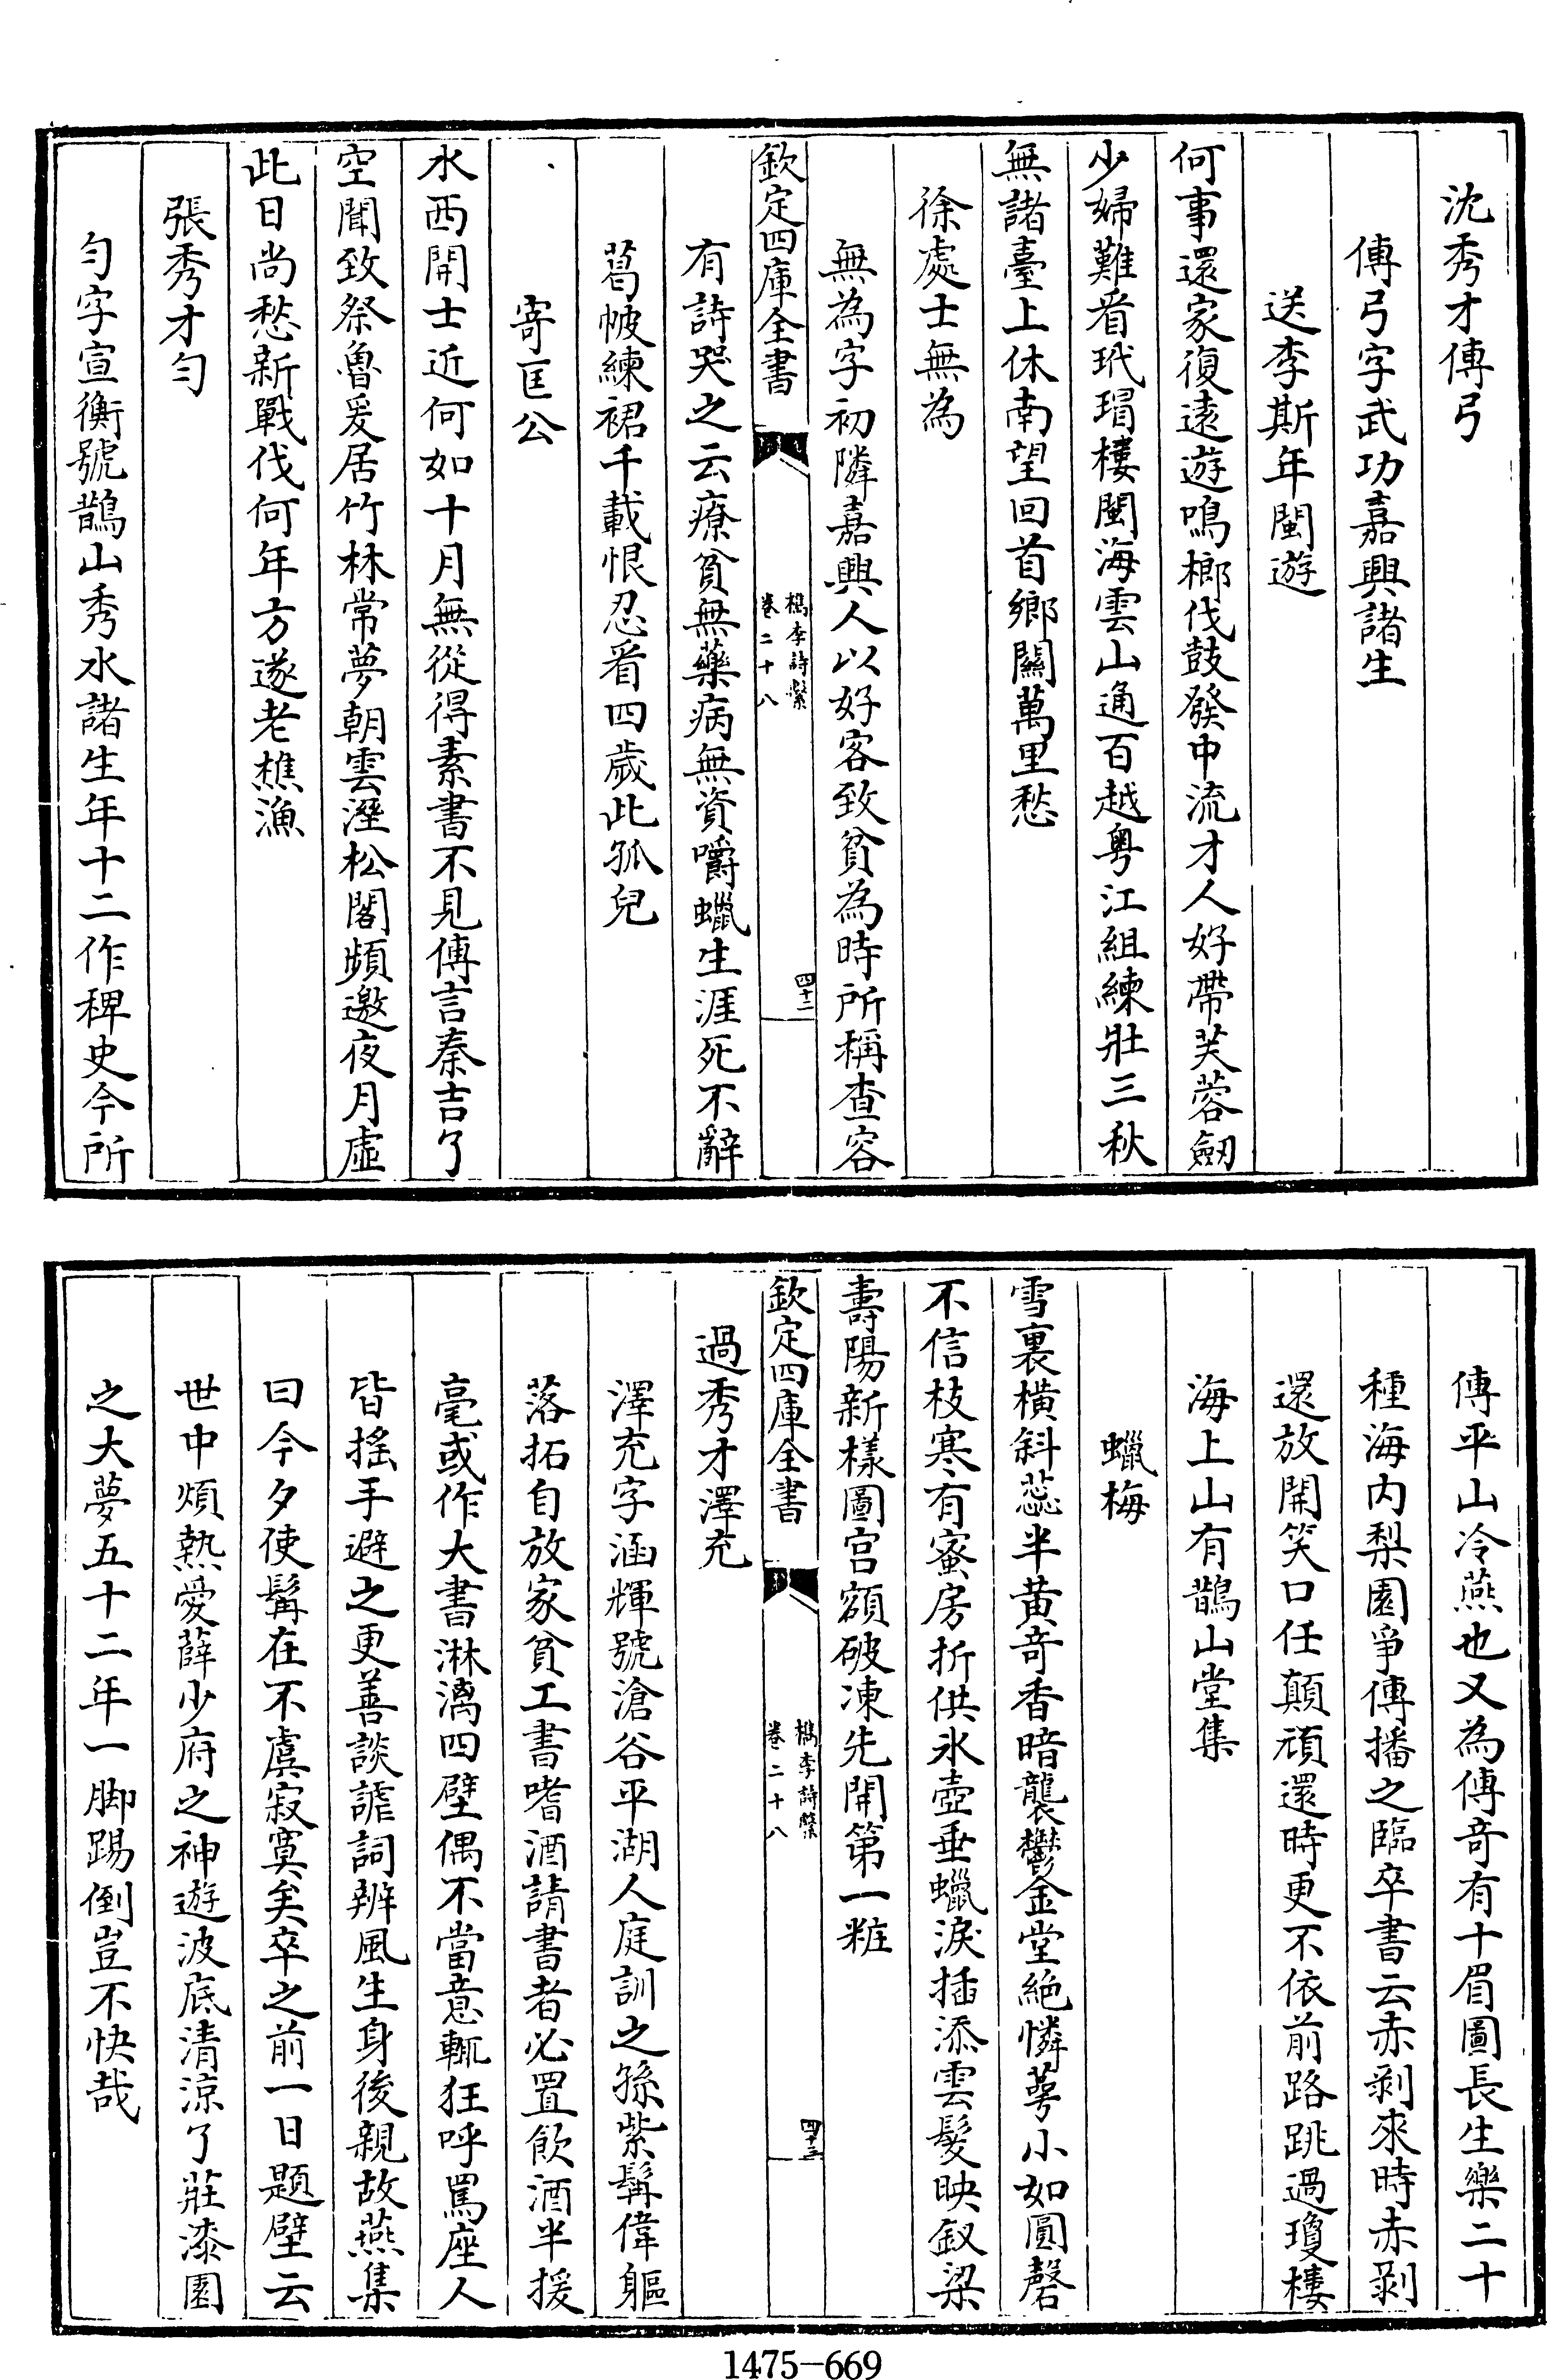 沈秀才傳弓
傳弓字武功嘉興諸生
送李斯年閩遊
何事還家復遠遊鳴榔伐鼓發中流才人好帶芙蓉劒
少婦難看玳瑁樓閩海雲山通百越粤江組練壯三秋
無諸臺上休南望回首鄉關萬里愁
徐處士無為
無為字初隣嘉興人以好客致貧為時所稱查容
欽定四庫全書
檇李詩繫
卷二十八
四十二
有詩哭之云療貧無藥病無資嚼蠟生涯死不辭
葛帔練裙千載恨忍看四歲此孤兒
寄匡公
水西開士近何如十月無從得素書不見傳言秦吉了
空聞致祭魯爰居竹林常夢朝雲溼松閣頻邀夜月虛
此日尚愁新戰伐何年方遂老樵漁
張秀才勻
勻字宣衡號鵲山秀水諸生年十二作稗史今所
傳平山冷燕也又為傳奇有十眉圖長生樂二十
種海内梨園爭傳播之臨卒書云赤剥來時赤剥
還放開笑口任顛頑還時更不依前路跳過瓊樓
海上山有鵲山堂集
蠟梅
雪裏橫斜蕊半黄奇香暗襲鬱金堂絶憐萼小如圓磬
不信枝寒有蜜房折供氷壺垂蠟淚插添雲髮映釵梁
壽陽新様圖宫額破凍先開第一粧
欽定四庫全書
檇李詩繫
卷二十八
四十三
過秀才澤充
澤充字涵輝號滄谷平湖人庭訓之孫紫髯偉軀
落拓自放家貧工書嗜酒請書者必置飲酒半援
毫或作大書淋漓四壁偶不當意輒狂呼罵座人
皆摇手避之更善談謔詞辨風生身後親故燕集
曰今夕使髯在不虞寂寞矣卒之前一日題壁云
世中煩熱愛薛少府之神遊波底清涼了莊漆園
之大夢五十二年一脚踢倒豈不快哉
1475-669